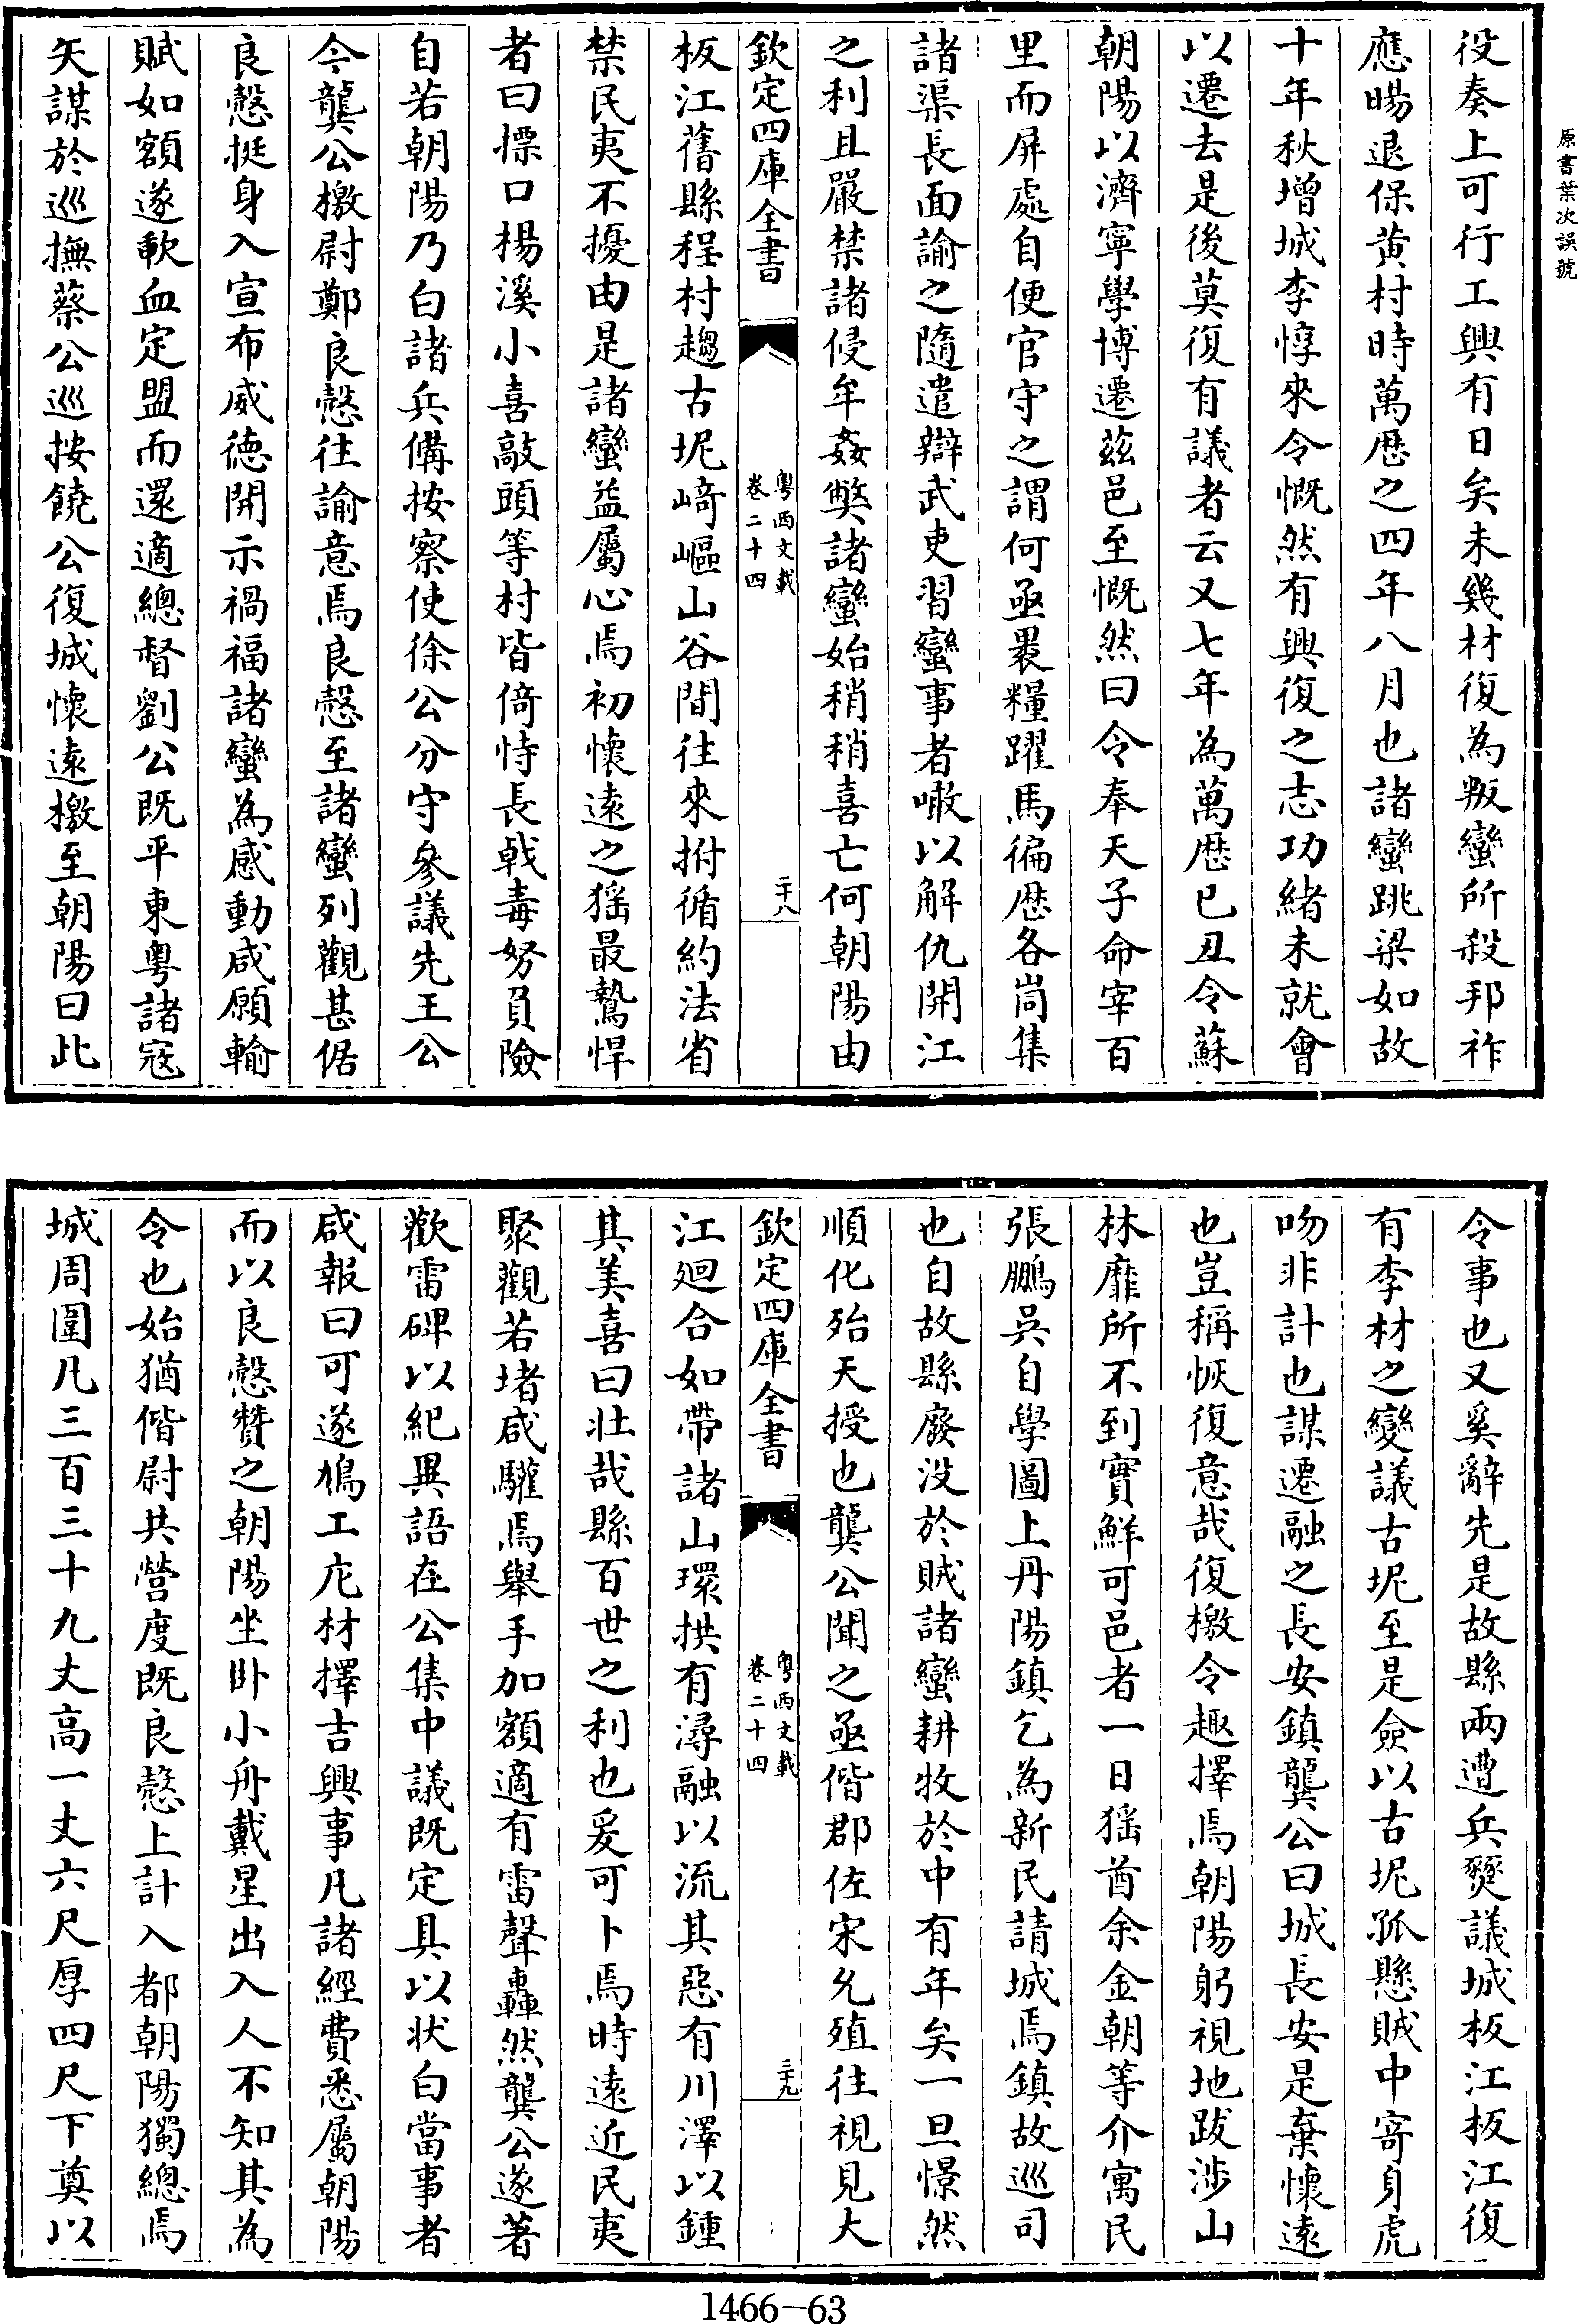 原書葉次誤號
役奏上可行工興有日矣未幾材復為叛蠻所殺邦祚
應暘退保黄村時萬厯之四年八月也諸蠻跳梁如故
十年秋增城李惇來令慨然有興復之志功緒未就會
以遷去是後莫復有議者云又七年為萬厯己丑令蘇
朝陽以濟寧學博遷兹邑至慨然曰令奉天子命宰百
里而屏處自便官守之謂何亟褁糧躍馬徧厯各峝集
諸渠長面諭之隨遣辯武吏習蠻事者噉以解仇開江
之利且嚴禁諸侵牟姦獘諸蠻始稍稍喜亡何朝陽由
欽定四庫全書
粤西文載
卷二十四
二十八
板江舊縣程村趨古坭﨑嶇山谷間往來拊循約法省
禁民夷不擾由是諸蠻益屬心焉初懷遠之猺最鷙悍
者曰摽口楊溪小喜敲頭等村皆倚恃長戟毒弩負險
自若朝陽乃白諸兵備按察使徐公分守參議先王公
今龔公檄尉鄭良慤往諭意焉良慤至諸蠻列觀甚倨
良慤挺身入宣布威德開示禍福諸蠻為感動咸願輸
賦如額遂歃血定盟而還適總督劉公既平東粤諸寇
矢謀於巡撫蔡公巡按饒公復城懷遠檄至朝陽曰此
令事也又奚辭先是故縣兩遭兵燹議城板江板江復
有李材之變議古坭至是僉以古坭孤懸賊中寄身虎
吻非計也謀遷融之長安鎮龔公曰城長安是棄懷遠
也豈稱恢復意哉復檄令趣擇焉朝陽躬視地跋涉山
林靡所不到實鮮可邑者一日猺酋余金朝等介寓民
張鵬呉自學圖上丹陽鎮乞為新民請城焉鎮故巡司
也自故縣廢没於賊諸蠻耕牧於中有年矣一旦憬然
順化殆天授也龔公聞之亟偕郡佐宋允殖往視見大
欽定四庫全書
粤西文載
卷二十四
三十九
江廻合如帶諸山環拱有潯融以流其惡有川澤以鍾
其美喜曰壯哉縣百世之利也爰可卜焉時遠近民夷
聚觀若堵咸驩焉舉手加額適有雷聲轟然龔公遂著
歡雷碑以紀異語在公集中議既定具以状白當事者
咸報曰可遂鳩工庀材擇吉興事凡諸經費悉屬朝陽
而以良慤贊之朝陽坐卧小舟戴星出入人不知其為
令也始猶偕尉共營度既良慤上計入都朝陽獨總焉
城周圍凡三百三十九丈高一丈六尺厚四尺下奠以
1466—63